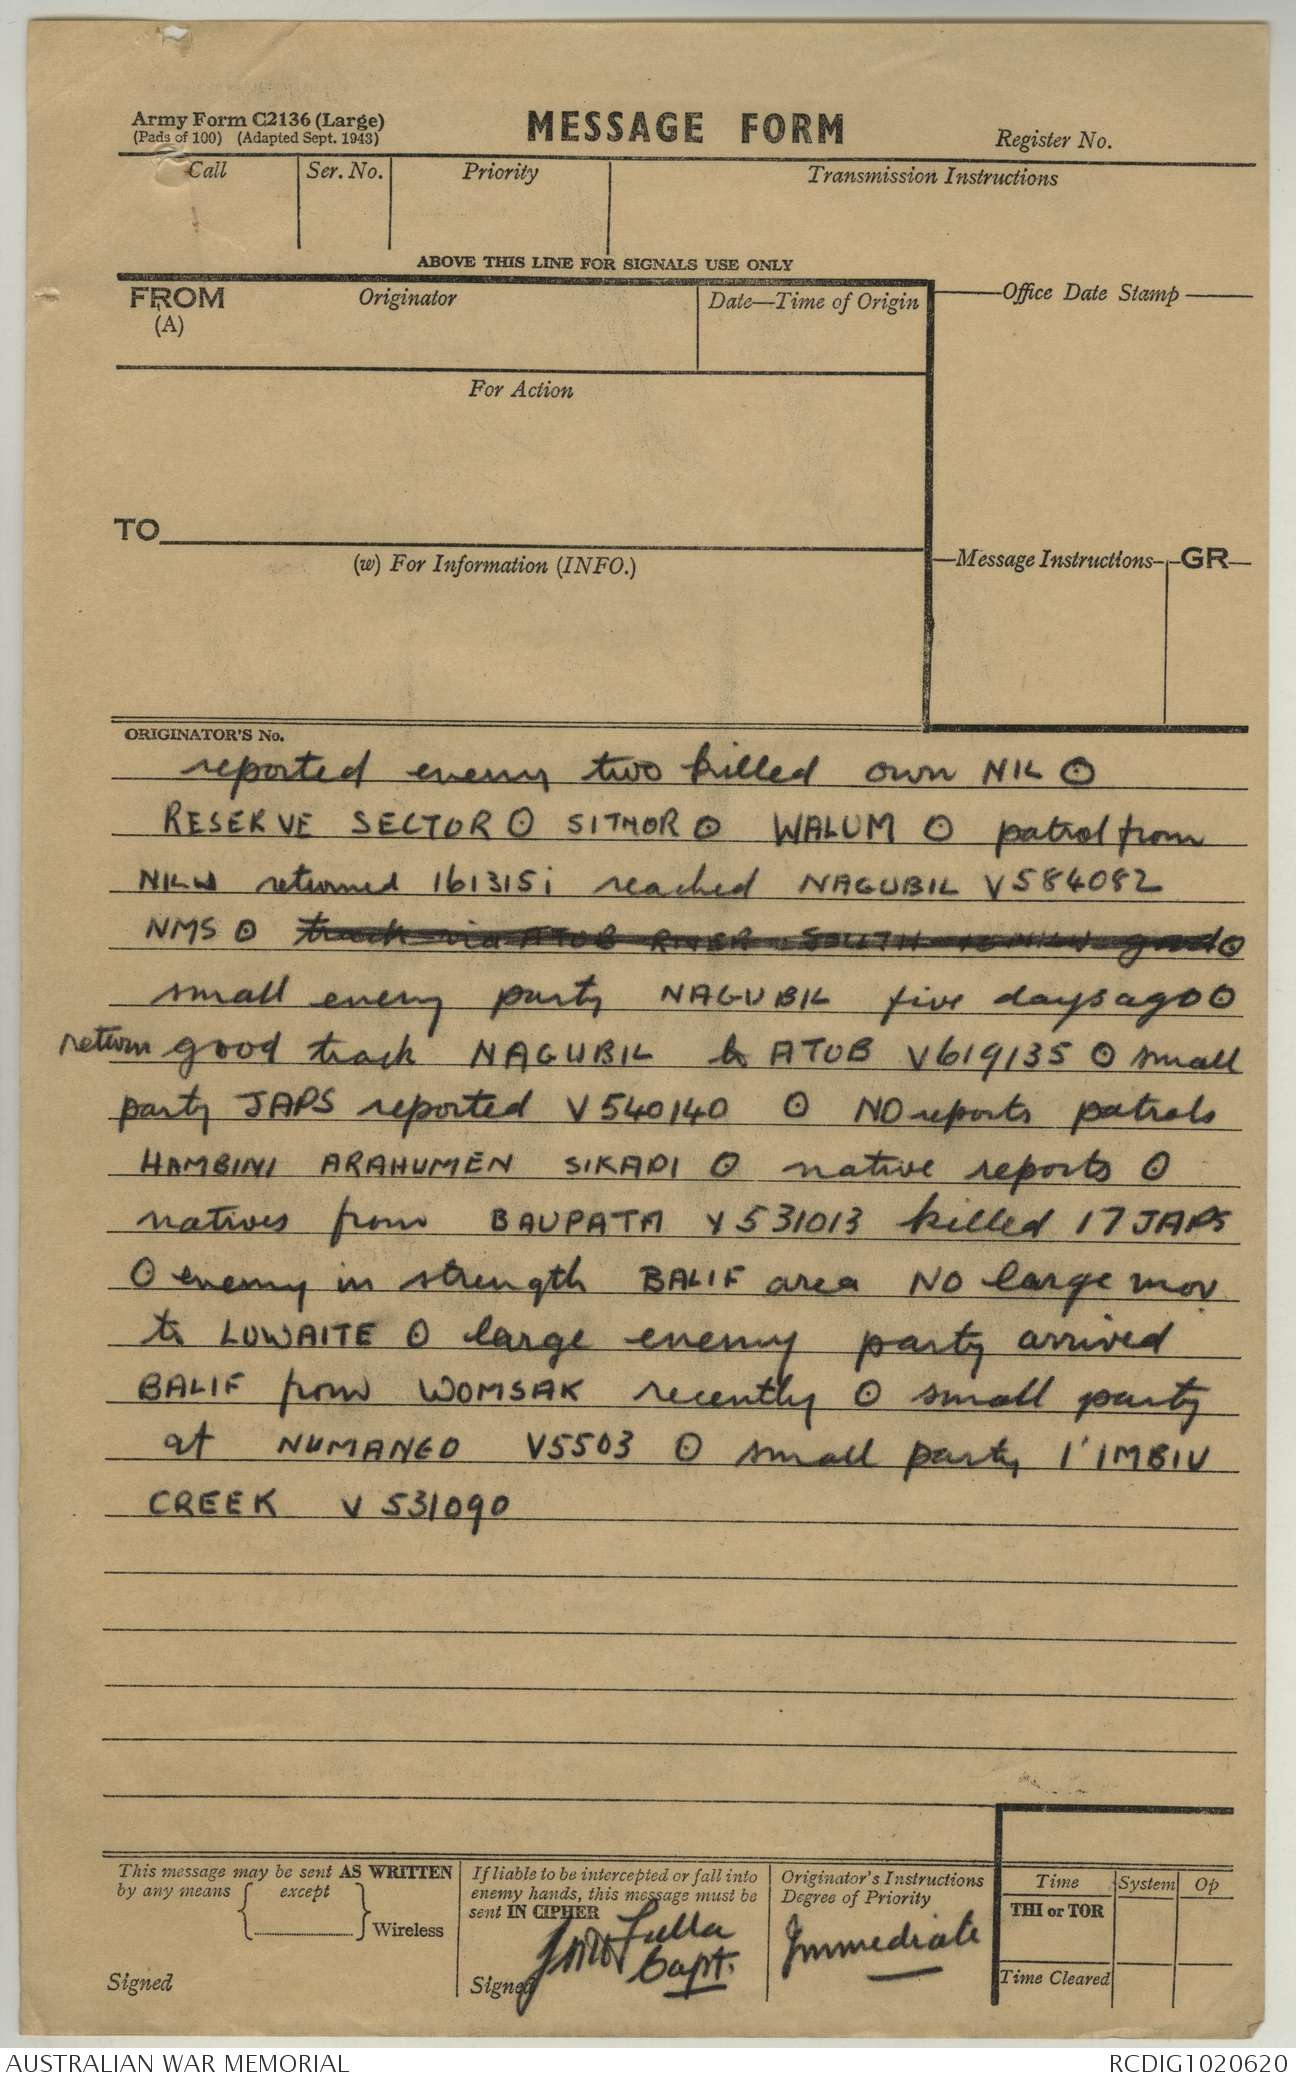 Army Form C2136 (Large)
(Pads of 100) (Adapted Sept. 1943)
MESSAGE FORM
Register No.
Call
Ser. No.
Priority
Transmission Instructions
ABOVE THIS LINE FOR SIGNALS USE ONLY
FROM
(A)
Originator
Date—Time of Origin
Office Date Stamp
For Action
TO
(w) For Information (INFO.)
Message Instructions
GR
ORIGINATOR'S No.
reported enemy two killed own NIL ⊙
RESERVE SECTOR ⊙ SITMOR ⊙ WALUM ⊙ patrol from
NILW returned 161315i reached NAGUBIL V584082
NMS ⊙ track via ATOB RIVER SOUTH to NILW good ⊙
small enemy party NAGUBIL five days ago ⊙
return good track NAGUBIL to ATOB V619135 ⊙ small
party JAPS reported V540140 ⊙ NO reports patrols
HAMBINI ARAHUMEN SIKADI ⊙ native reports ⊙
natives from BAUPATA V531013 killed 17 JAPS
⊙ enemy in strength BALIF area NO large mov
to LUWAITE ⊙ large enemy party arrived
BALIF from WOMSAK recently ⊙ small party
at NUMANGO V5503 ⊙ small party I'IMBIU
CREEK V531090
This message may be sent AS WRITTEN
by any means { except } Wireless
Signed
If liable to be intercepted or fall into
enemy hands, this message must be
sent IN CIPHER
Signed
Capt.
Originator's Instructions
Degree of Priority
Immediate
Time
System
Op
THI or TOR
Time Cleared
AUSTRALIAN WAR MEMORIAL
RCDIG1020620